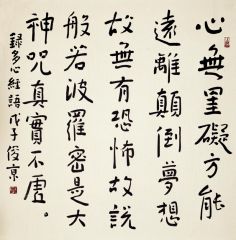 心無罣礙方能
遠離顛倒夢想
故無有恐怖故說
般若波羅密是大
神咒真實不虛。
錄多心經語戊子俊京